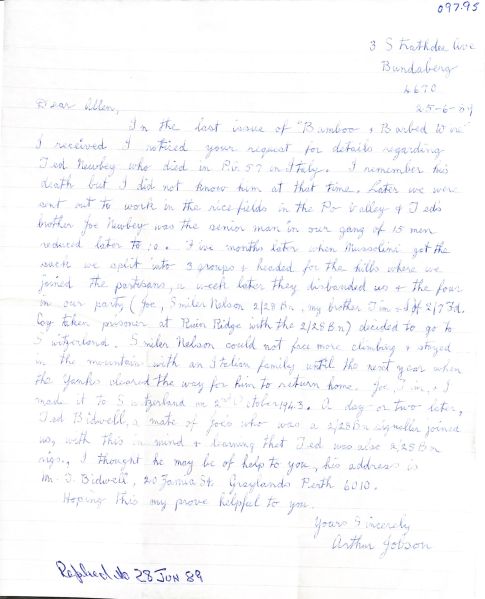 097.95
3 Strathdee Ave
Bundaberg
4670
25-6-89
Dear Allen,
In the last issue of "Bamboo + Barbed Wire"
I received I noticed your request for details regarding
Ted Newbey who died in P.W. 57 in Italy. I remember his
death but I did not know him at that time. Later we were
sent out to work in the rice fields in the Po Valley & Teds
brother Joe Newbey was the senior man in our gang of 15 men
reduced later to 10. Five months later when Mussolini got the
sack we split into 3 groups & headed for the hills where we
joined the partisans, a week later they disbanded us & the four
in our party (Joe, Smiler Nelson 2/28 Bn, my brother Jim & I of 2/7 Fd.
Coy taken prisoner at Ruin Ridge with the 2/28 Bn) decided to go to
Switzerland. Smiler Nelson could not face more climbing & stayed
in the mountain with an Italian family until the next year when
the Yanks cleared the way for him to return home. Joe, Jim, & I
made it to Switzerland on 2nd October 1943. A day or two later,
Ted Bidwell, a mate of Joe's who was a 2/28 Bn signaller joined
us, with this in mind & learning that Ted was also 2/28 Bn
sigs., I thought he may be of help to you, his address is
Mr. T. Bidwell, 20 Tamia St. Graylands Perth 6010.
Hoping this my prove helpful to you.
Yours Sincerely
Arthur Jobson
Replied 28 JUN 89